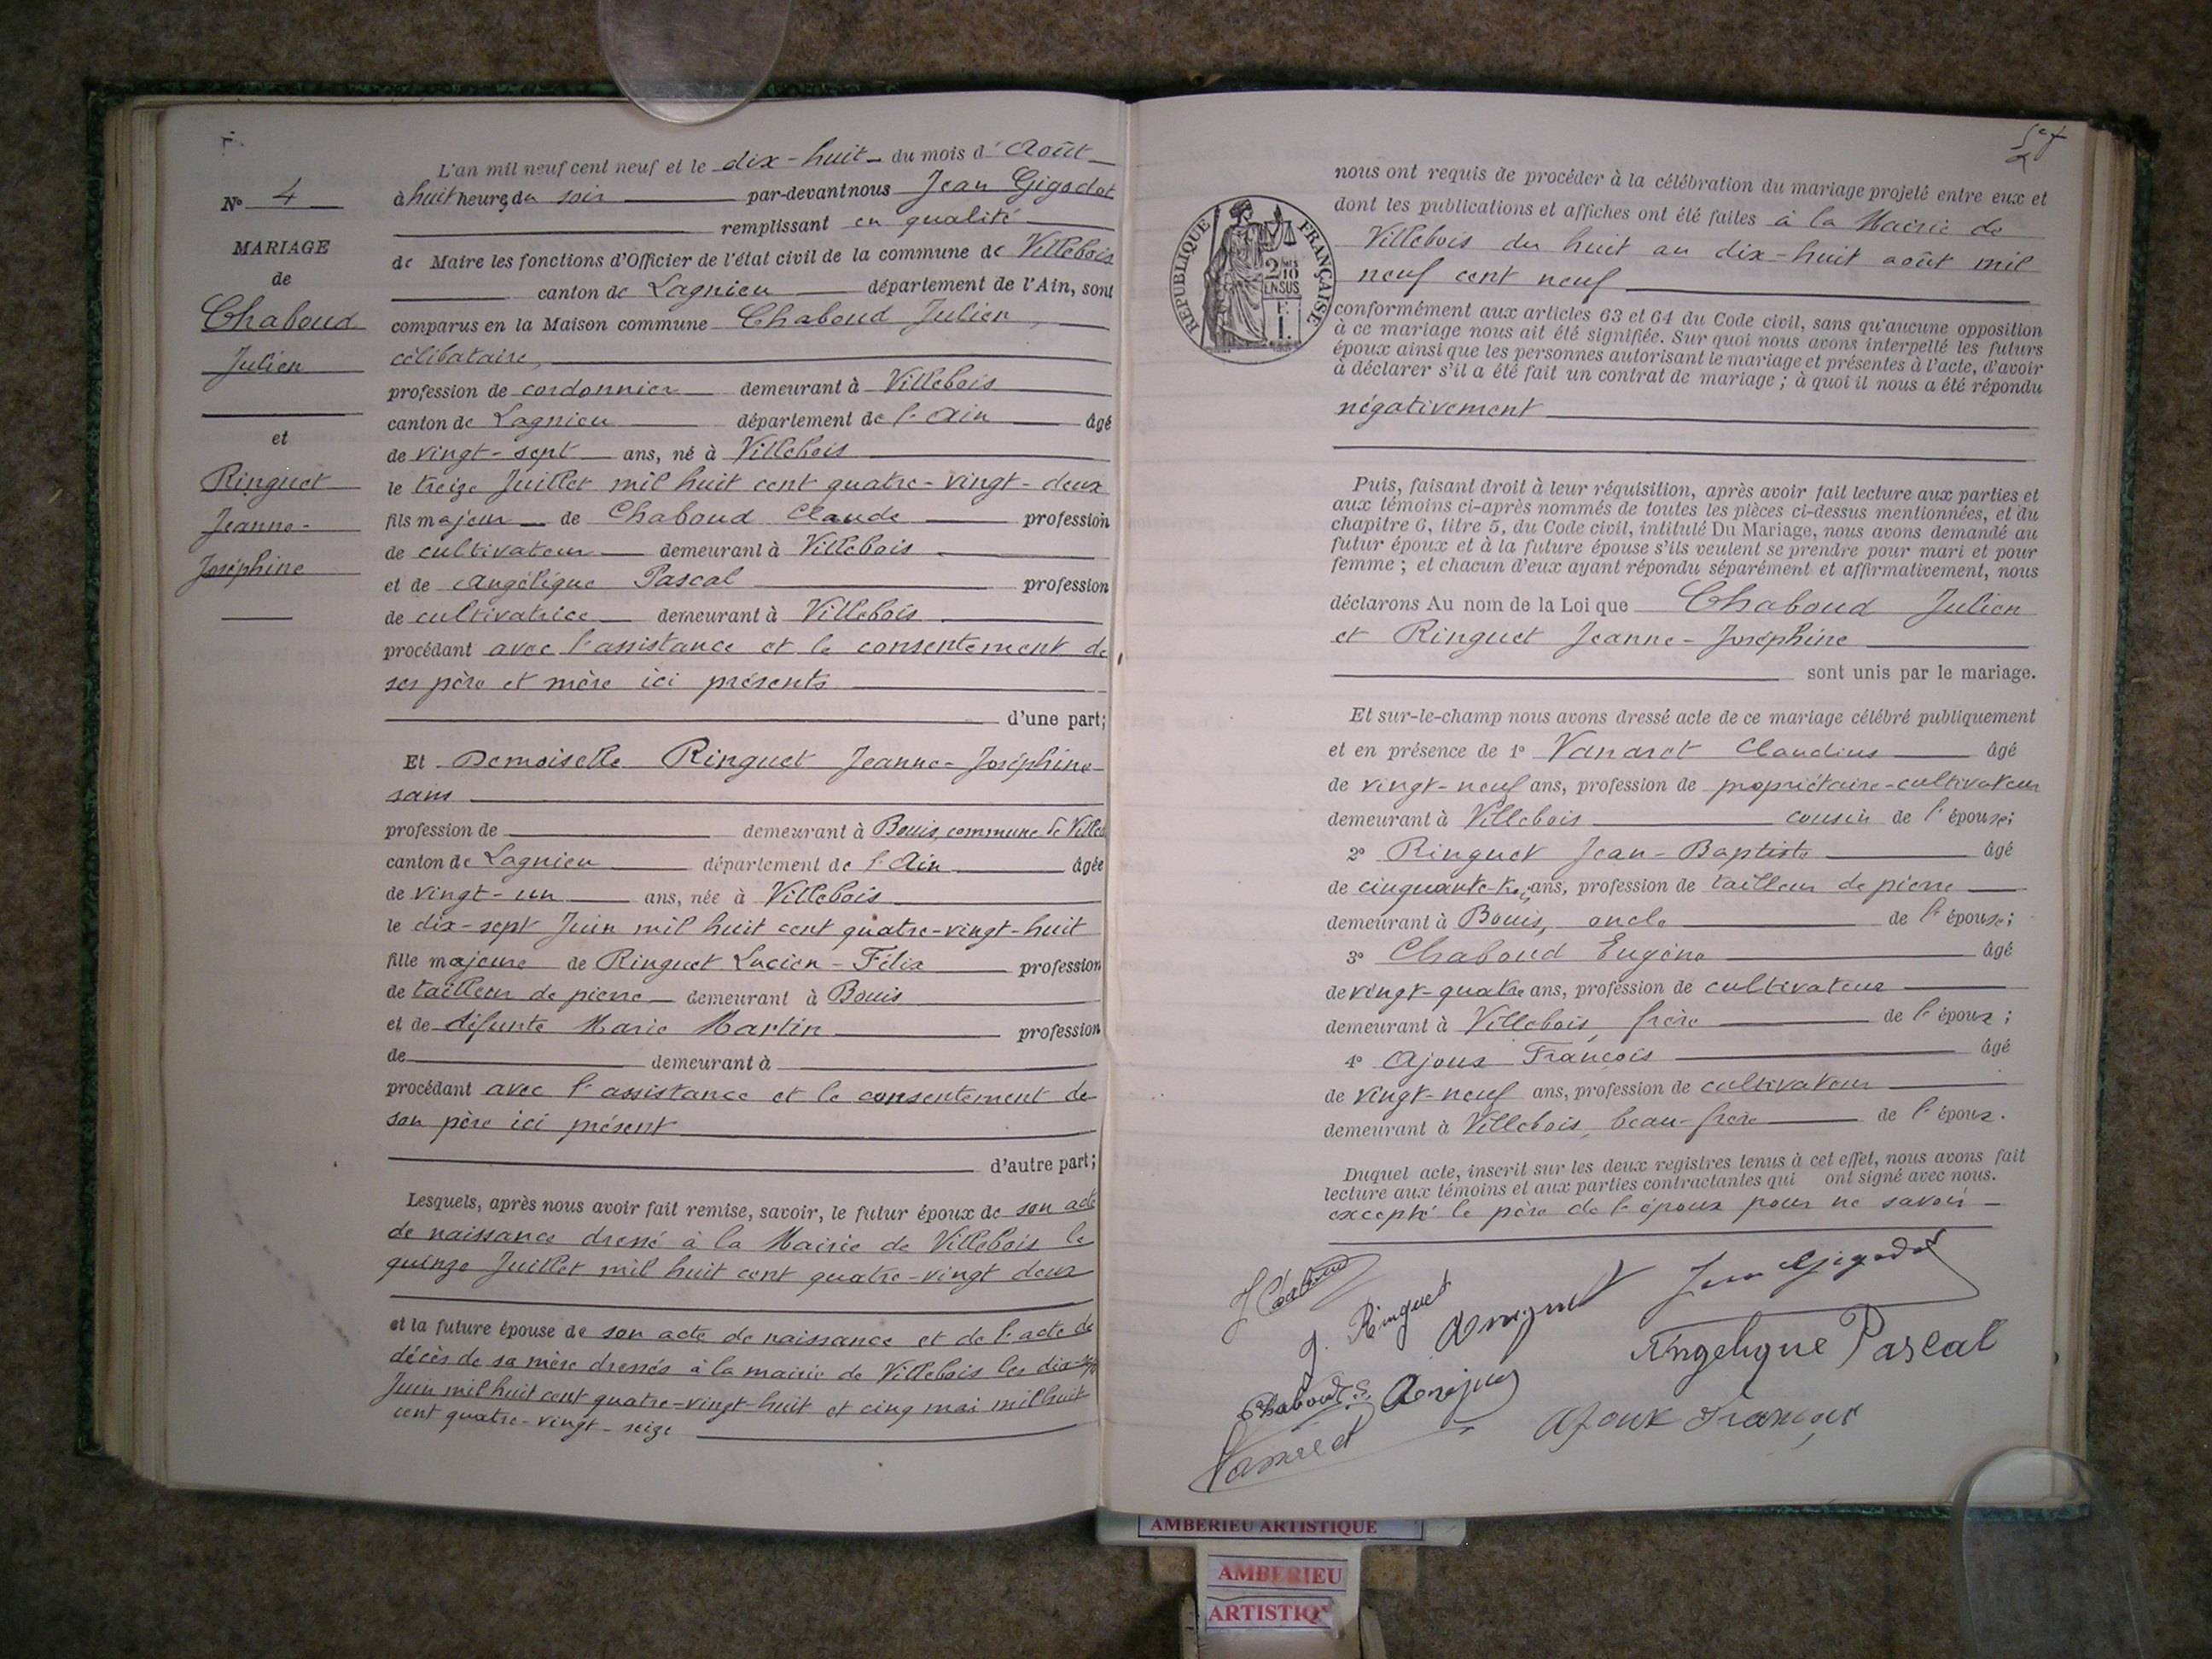 L'an mil neuf cent neuf et le dix-huit du mois d'Août
à huit heures du soir par-devant nous Jean Gigodot
remplissant en qualité
de Maire les fonctions d'Officier de l'état civil de la commune de Villebois
canton de Lagnieu département de l'Ain, sont
comparus en la Maison commune Chaboud Julien,
célibataire,
profession de cordonnier demeurant à Villebois
canton de Lagnieu département de l'Ain âgé
de vingt-sept ans, né à Villebois
le treize Juillet mil huit cent quatre-vingt-deux
fils majeur de Chaboud Claude profession
de cultivateur demeurant à Villebois
et de Angélique Pascal profession
de cultivatrice demeurant à Villebois
procédant avec l'assistance et le consentement de
ses père et mère ici présents
d'une part;
Et Demoiselle Ringuet Jeanne-Joséphine
sans
profession de demeurant à Bouis, commune de Villeb
canton de Lagnieu département de l'Ain âgée
de vingt-un ans, née à Villebois
le dix-sept Juin mil huit cent quatre-vingt-huit
fille majeure de Ringuet Lucien-Félix profession
de tailleur de pierre demeurant à Bouis
et de défunte Marie Martin profession
de demeurant à
procédant avec l'assistance et le consentement de
son père ici présent
d'autre part;
Lesquels, après nous avoir fait remise, savoir, le futur époux de son acte
de naissance dressé à la Mairie de Villebois le
quinze Juillet mil huit cent quatre-vingt deux
et la future épouse de son acte de naissance et de l'acte de
décès de sa mère dressés à la mairie de Villebois les dix-sept
Juin mil huit cent quatre-vingt-huit et cinq mai mil huit
cent quatre-vingt-seize
N° 4
MARIAGE
de
Chaboud
Julien
et
Ringuet
Jeanne-
Joséphine
nous ont requis de procéder à la célébration du mariage projeté entre eux et
dont les publications et affiches ont été faites à la Mairie de
Villebois du huit au dix-huit août mil
neuf cent neuf
conformément aux articles 63 et 64 du Code civil, sans qu'aucune opposition
à ce mariage nous ait été signifiée. Sur quoi nous avons interpellé les futurs
époux ainsi que les personnes autorisant le mariage et présentes à l'acte, d'avoir
à déclarer s'il a été fait un contrat de mariage; à quoi il nous a été répondu
négativement
Puis, faisant droit à leur réquisition, après avoir fait lecture aux parties et
aux témoins ci-après nommés de toutes les pièces ci-dessus mentionnées, et du
chapitre 6, titre 5, du Code civil, intitulé Du Mariage, nous avons demandé au
futur époux et à la future épouse s'ils veulent se prendre pour mari et pour
femme; et chacun d'eux ayant répondu séparément et affirmativement, nous
déclarons Au nom de la Loi que Chaboud Julien
et Ringuet Jeanne-Joséphine
sont unis par le mariage.
Et sur-le-champ nous avons dressé acte de ce mariage célébré publiquement
et en présence de 1° Vanaret Claudius âgé
de vingt-neuf ans, profession de propriétaire-cultivateur
demeurant à Villebois cousin de l'épouse;
2° Ringuet Jean-Baptiste âgé
de cinquante-trois ans, profession de tailleur de pierre
demeurant à Bouis, oncle de l'épouse;
3° Chaboud Eugène âgé
de vingt-quatre ans, profession de cultivateur
demeurant à Villebois, frère de l'époux;
4° Ajoux François âgé
de vingt-neuf ans, profession de cultivateur
demeurant à Villebois, beau-frère de l'époux.
Duquel acte, inscrit sur les deux registres tenus à cet effet, nous avons fait
lecture aux témoins et aux parties contractantes qui ont signé avec nous.
excepté le père de l'époux pour ne savoir
RÉPUBLIQUE FRANÇAISE
2/10
EN SUS
J. Ringuet
Jean Gigodot
Angelique Pascal
Chaboud E.
Vanaret
Ajoux François
AMBERIEU ARTISTIQUE
AMBERIEU
ARTISTIQ